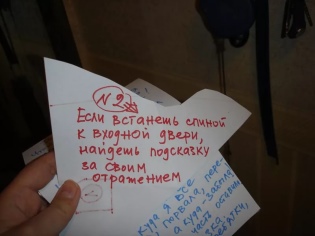 №2
Если встанешь спиной
к входной двери,
найдешь подсказку
за своим
отражением
куда я все
порвала, пере-
а куда-забыла
часть